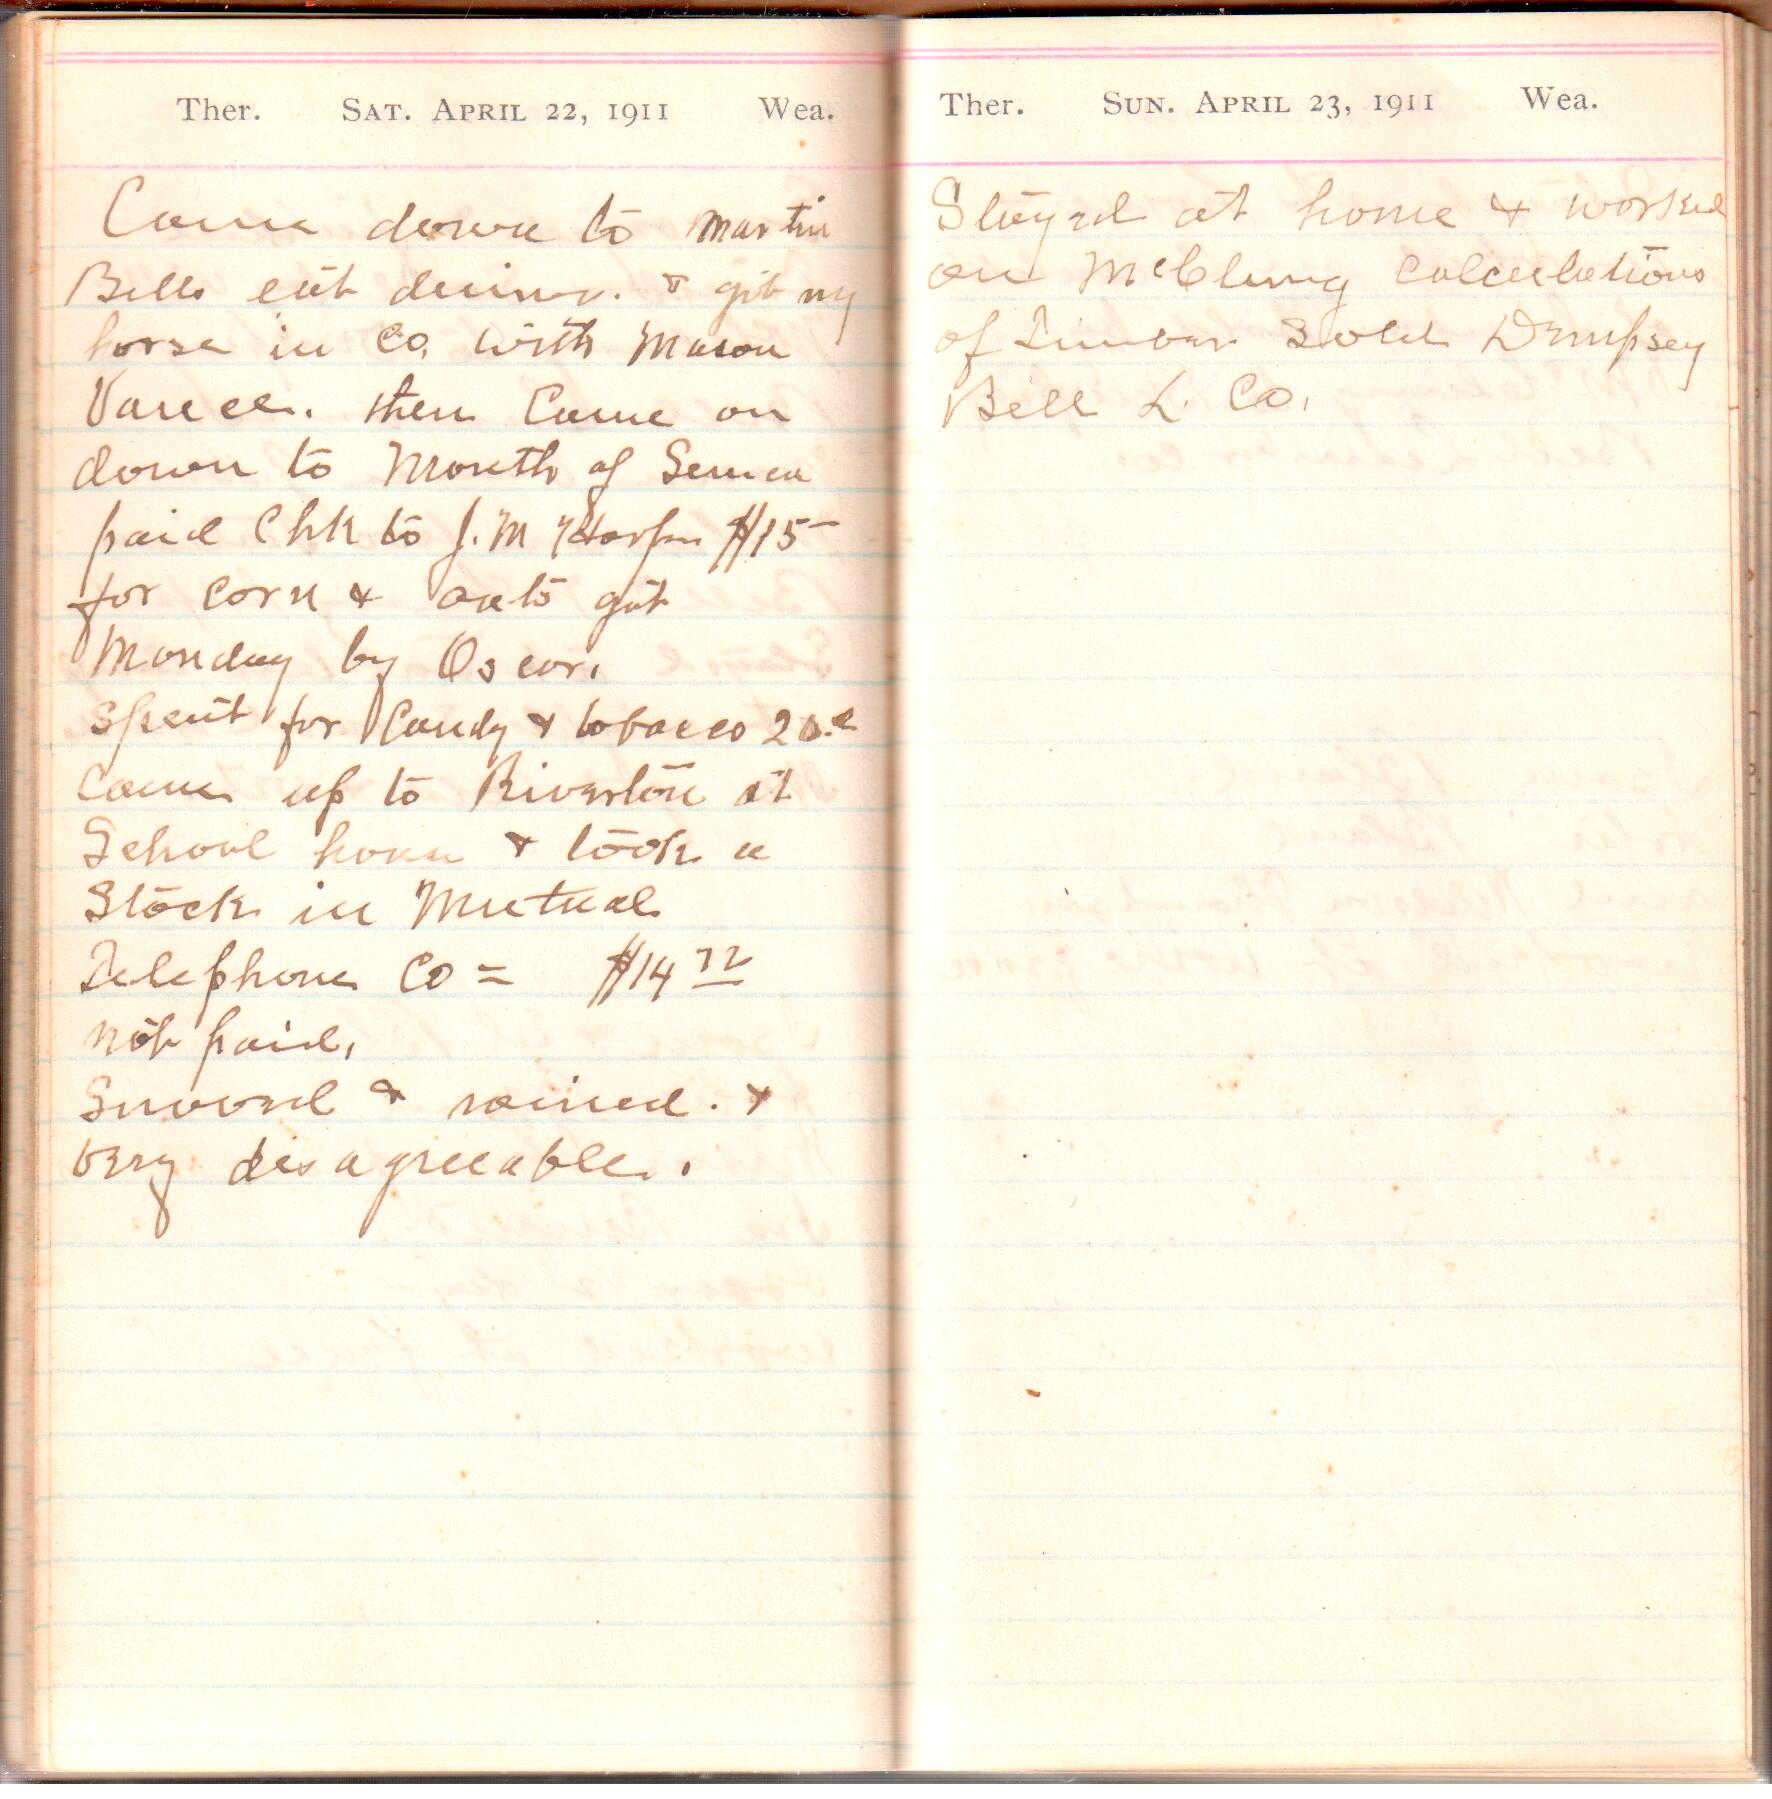 Ther. SAT. APRIL 22, 1911 Wea.
Came down to Martin
Bells eat dinner. & got my
horse in Co. with Mason
then Came on
down to Mouth of Seneca
paid Chk to J. M Harper $15-
for corn & oats got
Monday by Oscar,
Spent for Candy & tobacco 20.c
Came up to Riverton at
School house & took a
Stock in Mutual
Telephone Co = $14
not paid,
Snowed & rained. &
very disagreeable.
Ther. SUN. APRIL 23, 1911 Wea.
Stayed at home & worked
on McClung Calculations
of Timber Sold Dempsey
Bell L. Co.